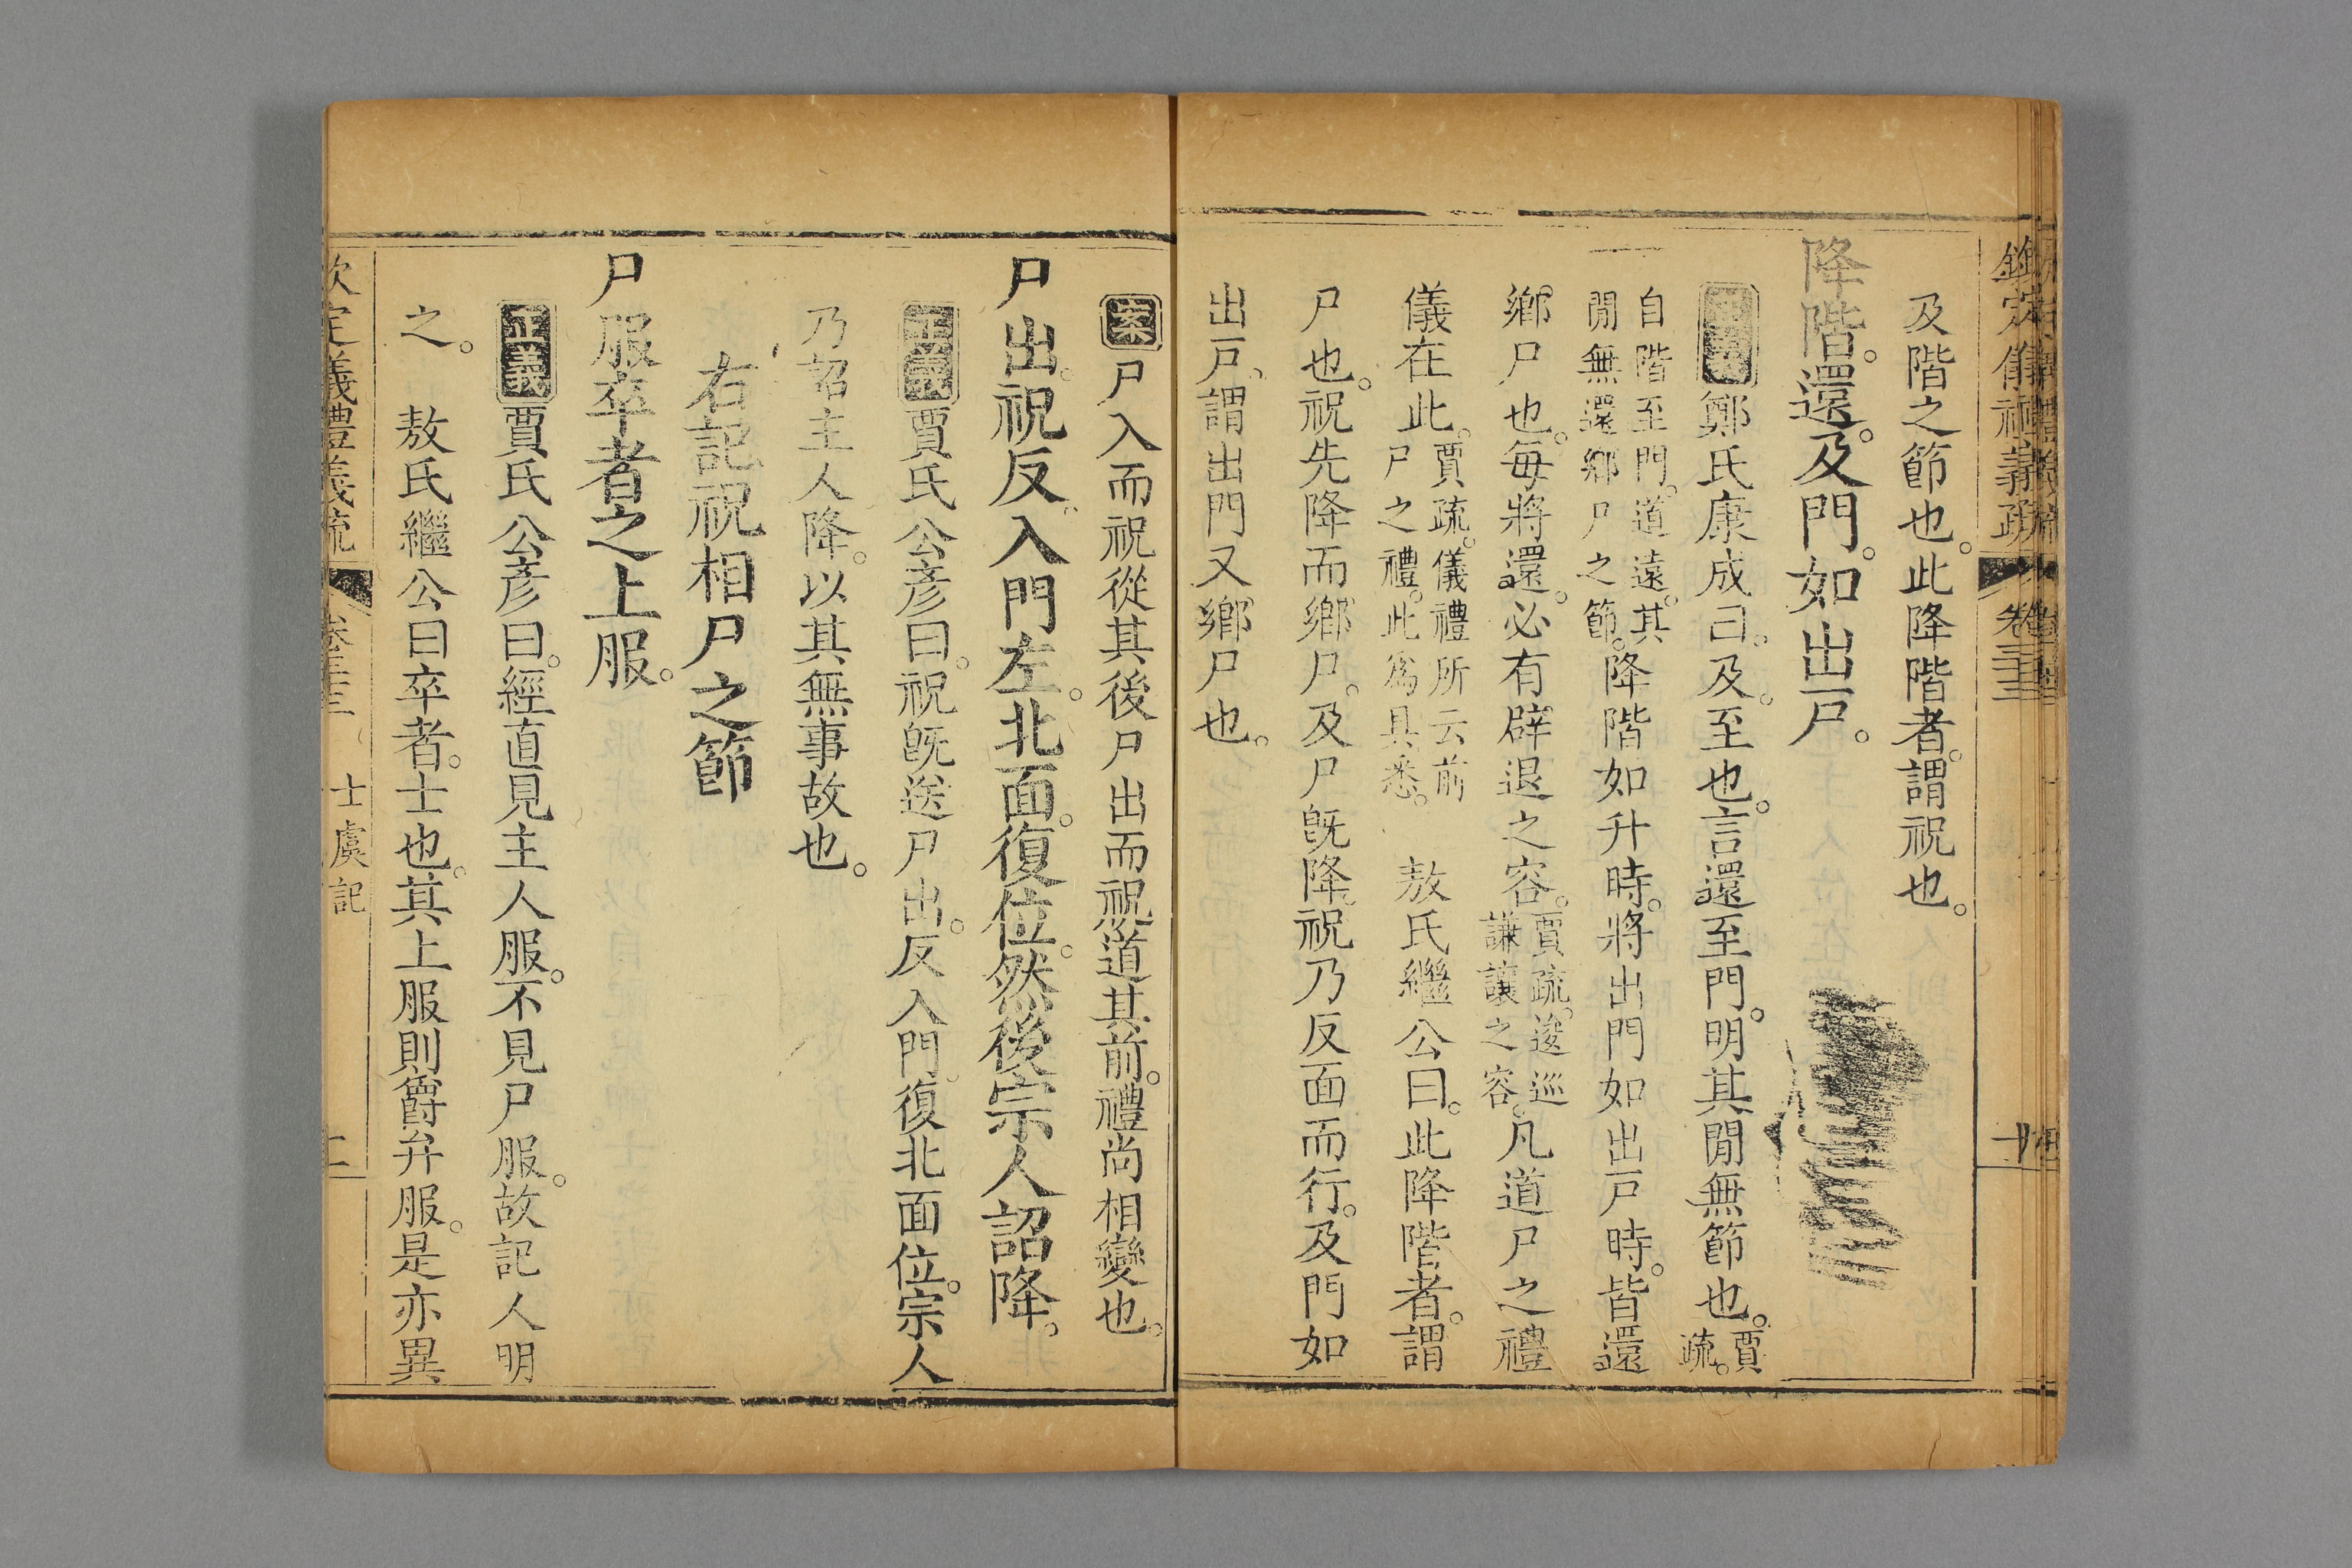 及階之節也。此降階者。謂祝也。
降階。還。及門。如出戶。
正義鄭氏康成曰。及。至也。言還至門。明其閒無節也。賈疏。
自階至門。道遠。其閒無還鄉尸之節。降階如升時。將出門如出戶時。皆還
鄉尸也。每將還。必有辟退之容。賈疏。逡巡謙讓之容。凡道尸之禮
儀在此。賈疏。儀禮所云前尸之禮。此爲具悉。 敖氏繼公曰。此降階者。謂
尸也。祝先降而鄉尸。及尸旣降。祝乃反面而行。及門如
出戶、謂出門又鄉尸也。
案尸入而祝從其後尸出而祝道其前。禮尚相變也。
尸出。祝反。入門左。北面。復位。然後宗人詔降。
正義賈氏公彥曰。祝旣送尸出。反入門。復北面位。宗人
乃詔主人降。以其無事故也。
右記祝相尸之節
尸服卒者之上服。
正義賈氏公彥曰。經直見主人服。不見尸服。故記人明
之。 敖氏繼公曰卒者。士也。其上服則爵弁服。是亦異
欽定義禮義疏 卷三十三 士虞記